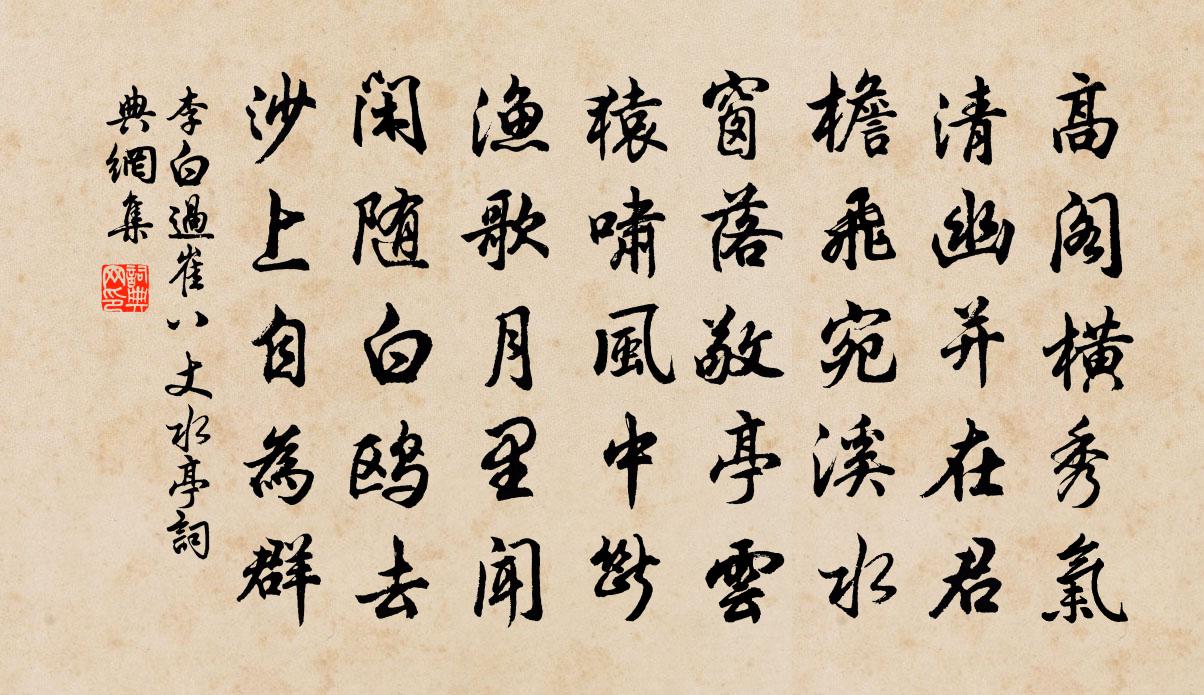 高閣橫秀氣
清幽并在君
檐飛宛溪水
窗落敬亭雲
猿嘯風中斷
漁歌月里聞
閑隨白鷗去
沙上自為群
李白過崔八丈水亭詞
典網集
詞典网印